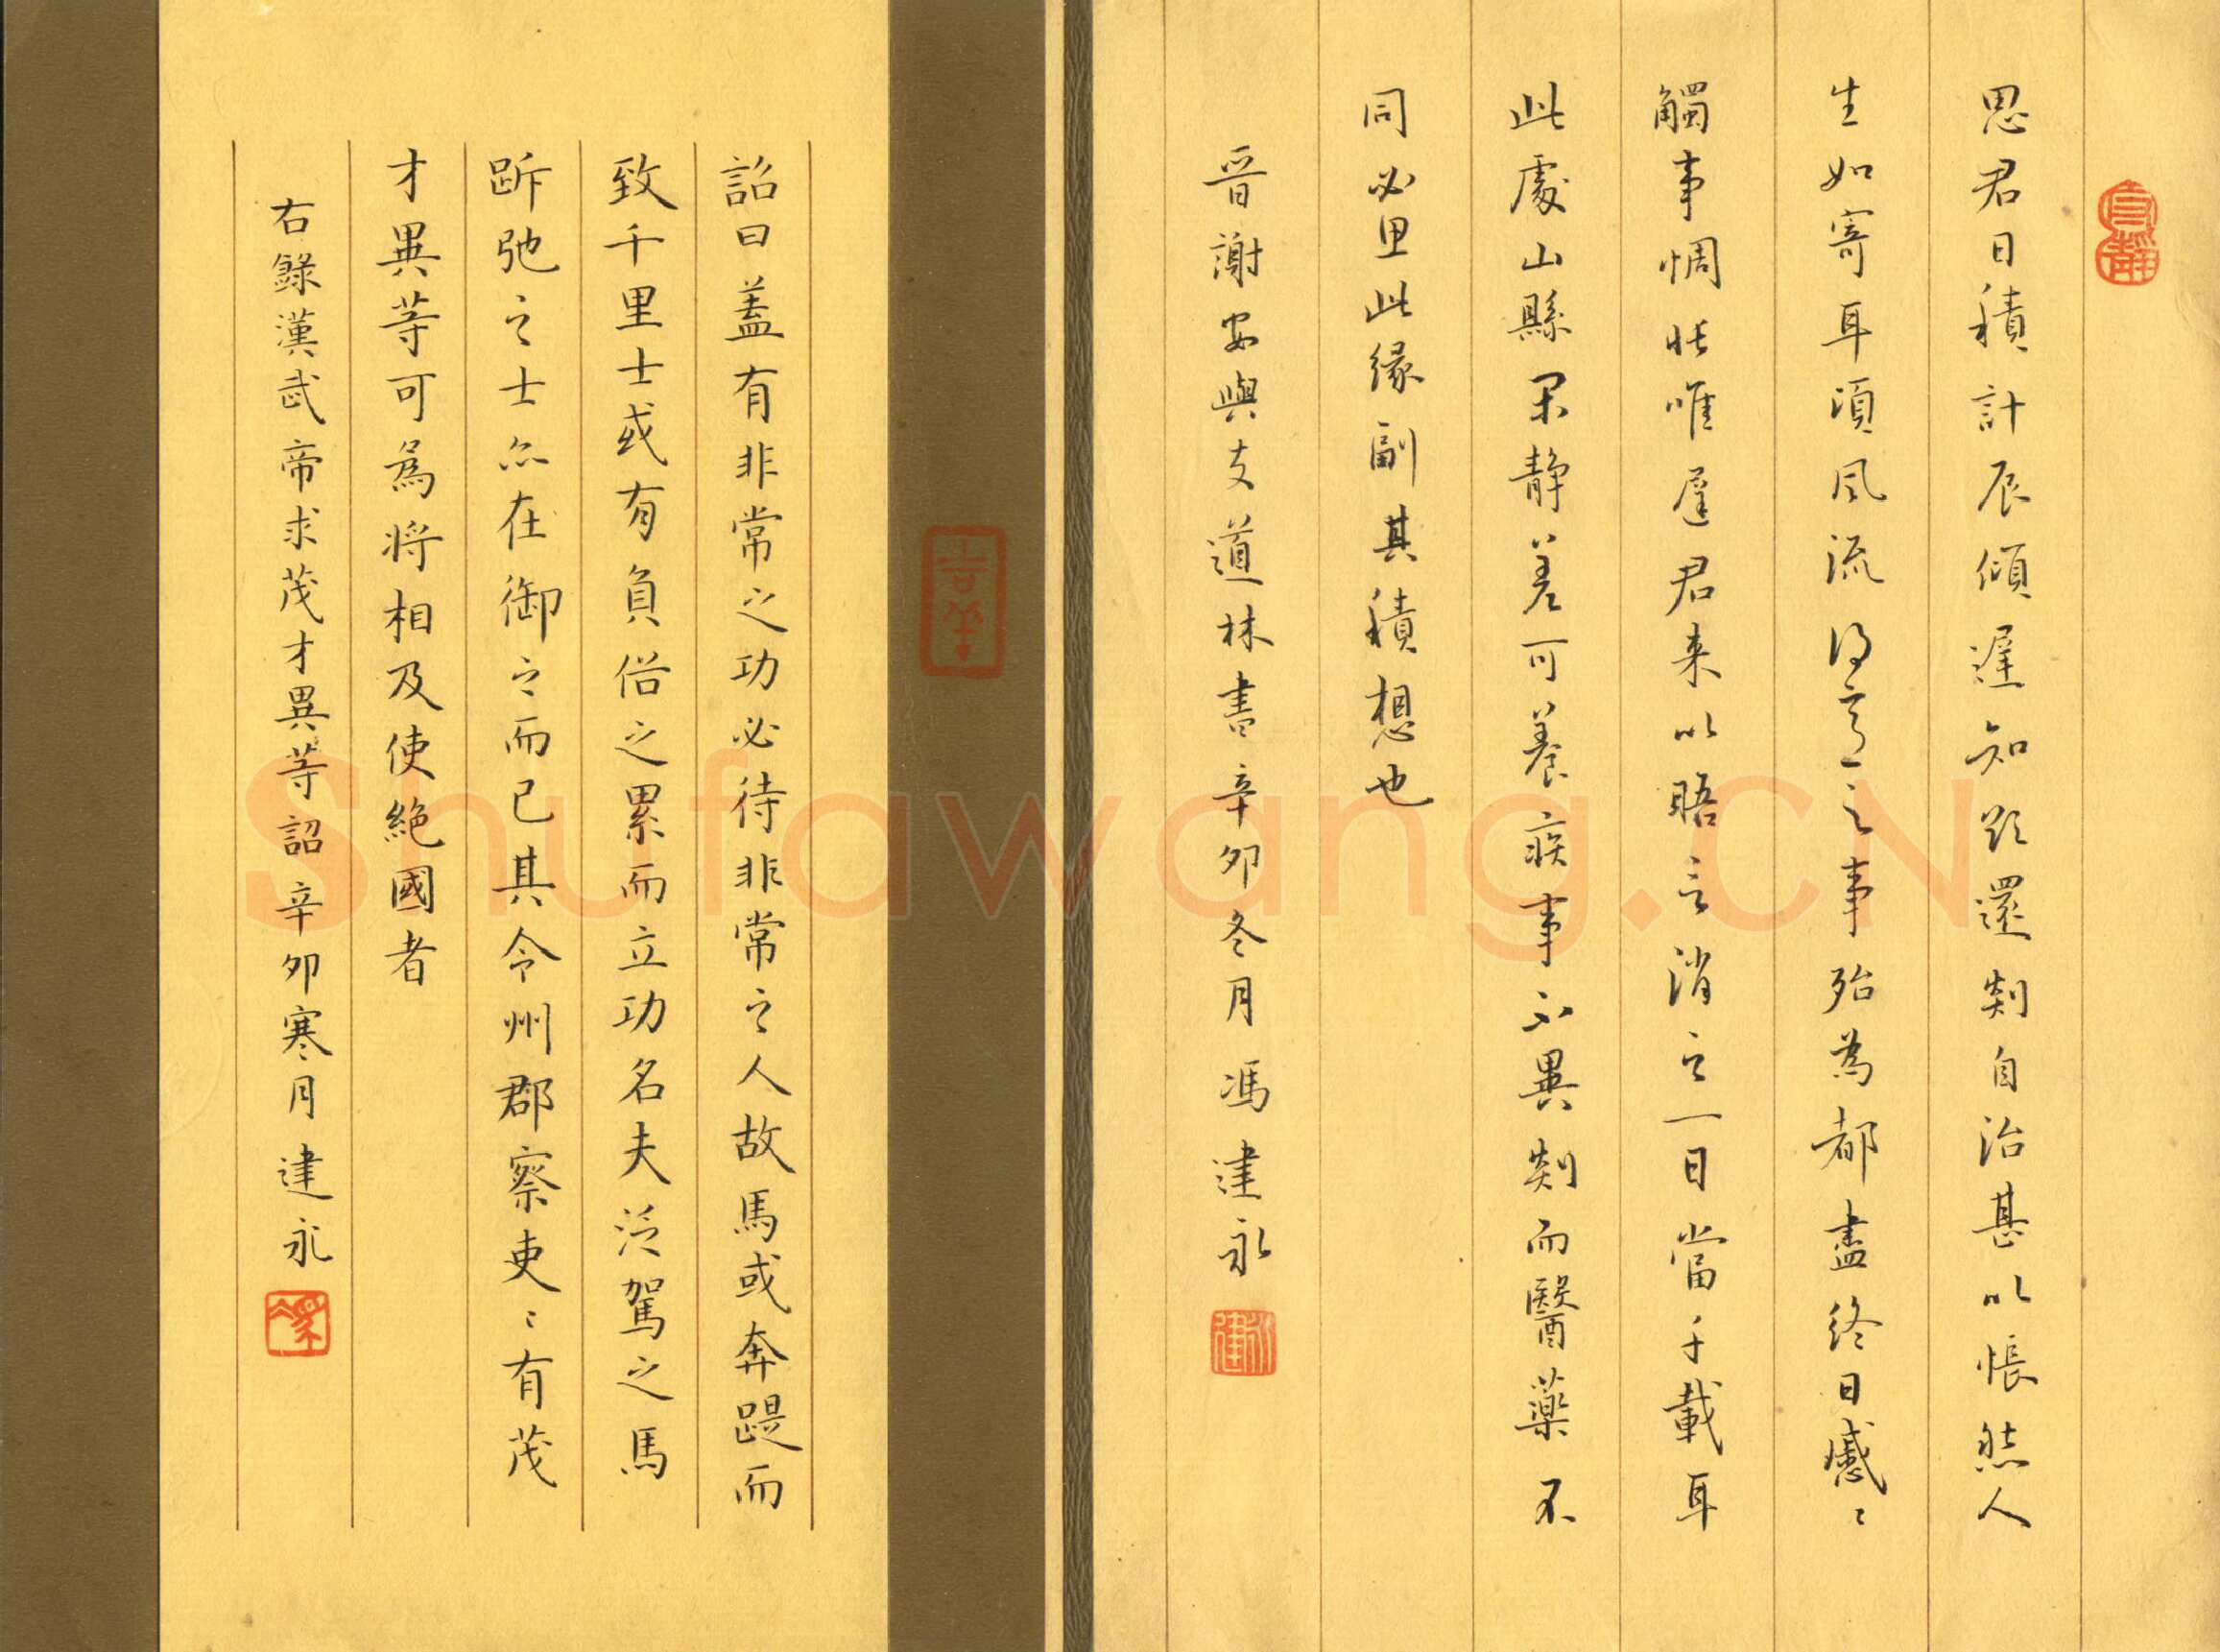 思君日積計辰傾遲知欲還剡自治甚以悵然人
生如寄耳頃風流得意之事殆為都盡終日慼〻
觸事惆悵唯遲君来以晤言消之一日當千載耳
此處山縣閑静差可養疾事不異剡而醫藥不
同必思此緣副其積想也
晋謝安與支道林書辛卯冬月馮建永
詔曰蓋有非常之功必待非常之人故馬或奔踶而
致千里士或有負俗之累而立功名夫泛駕之馬
跅弛之士亦在御之而已其令州郡察吏〻有茂
才異等可為将相及使絶國者
右錄漢武帝求茂才異等詔辛卯寒月建永
Shufawang.CN